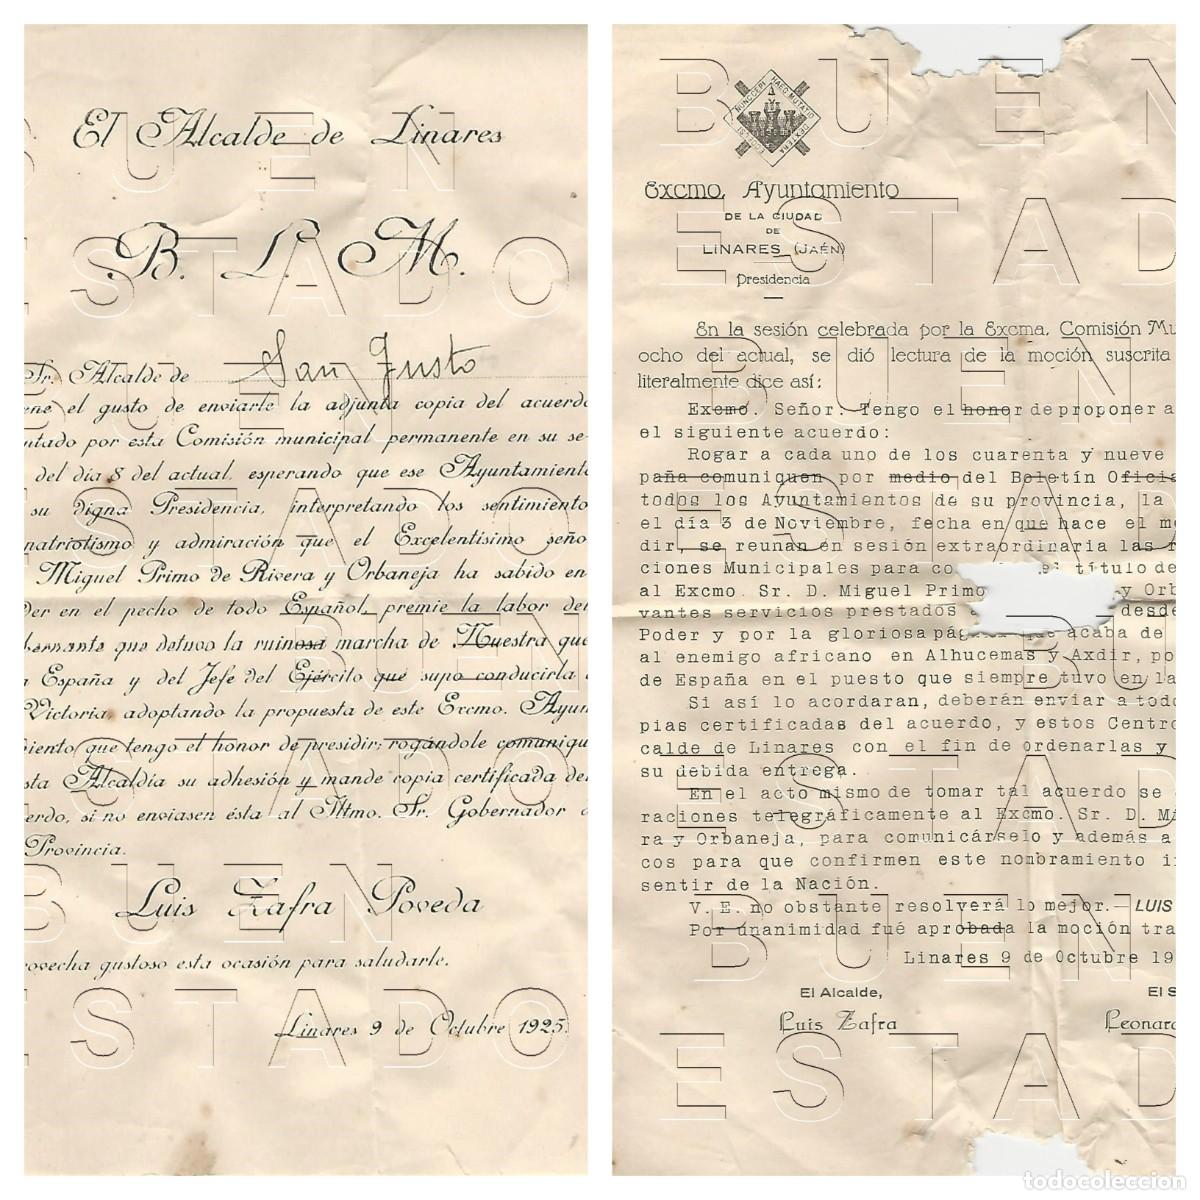 El Alcalde de Linares
B. L. M.
Sr. Alcalde de San Justo
ene el gusto de enviarle la adjunta copia del acuerdo
tado por esta Comisión municipal permanente en su se-
del día 8 del actual, esperando que ese Ayuntamiento
su digna Presidencia, interpretando los sentimiento
patriotismo y admiración que el Excelentísimo seño
Miguel Primo de Rivera y Orbaneja ha sabido en
der en el pecho de todo Español, premie la labor del
bernante que detuvo la ruinosa marcha de Nuestra que
España y del Jefe del Ejército que supo conducirla
Victoria, adoptando la propuesta de este Excmo. Ayun
iento que tengo el honor de presidir; rogándole comuniqu
sta Alcaldía su adhesión y mande copia certificada del
erdo, si no enviasen ésta al Iltmo. Sr. Gobernador
Provincia.
Luis Zafra Poveda
ovecha gustoso esta ocasión para saludarle.
Linares 9 de Octubre 1925.
NUNC CEPI HAEC MUTATIO DEXTERA EXCELSI
Excmo. Ayuntamiento
DE LA CIUDAD
DE
LINARES (JAÉN)
Presidencia
En la sesión celebrada por la Excma. Comisión Mu
ocho del actual, se dió lectura de la moción suscrita
literalmente dice así:
Excmo. Señor. Tengo el honor de proponer a
el siguiente acuerdo:
Rogar a cada uno de los cuarenta y nueve
paña comuniquen por medio del Boletín Oficia
todos los Ayuntamientos de su provincia, la
el día 3 de Noviembre, fecha en que hace el me
dir, se reunan en sesión extraordinaria las
ciones Municipales para co el título de
al Excmo. Sr. D. Miguel Primo y Orb
vantes servicios prestados desde
Poder y por la gloriosa página que acaba de
al enemigo africano en Alhucemas y Axdir, po
de España en el puesto que siempre tuvo en la
Si así lo acordaran, deberán enviar a todo
pias certificadas del acuerdo, y estos Centro
calde de Linares con el fin de ordenarlas y
su debida entrega.
En el acto mismo de tomar tal acuerdo se
raciones telegráficamente al Excmo. Sr. D. Mi
ra y Orbaneja, para comunicárselo y además a
cos para que confirmen este nombramiento i
sentir de la Nación.
V. E. no obstante resolverá lo mejor.—LUIS
Por unanimidad fué aprobada la moción tra
Linares 9 de Octubre 19
El Alcalde, El S
Luis Zafra Leonar
BUEN
ESTADO
BUEN
ESTADO
BUEN
ESTADO
BUEN
ESTADO
todocoleccion